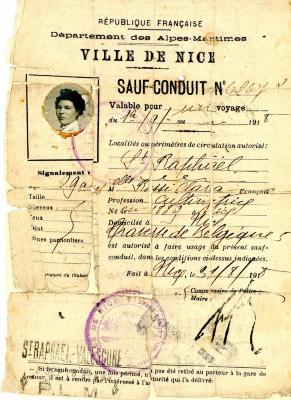 RÉPUBLIQUE FRANÇAISE
Département des Alpes-Maritimes
VILLE DE NICE
SAUF-CONDUIT N°
Valable pour un voyage
du 1er / 9 / 1918
Localités ou périmètres de circulation autorisé:
St Raphael
Signalement
Age
Taille
Cheveux
Yeux
Signes particuliers
Signature du titulaire
elle Rossi Clara
Française
Profession
Né
Domicilié à
Traverse de Belgique
est autorisé à faire usage du présent sauf-
conduit, dans les conditions ci-dessus indiquées.
Fait à Nice, 31/8/1918
Commissaire de Police
Maire:
ST RAPHAEL-VALESCURE
Si le sauf-conduit, une fois périmé, n'a pas été retiré au porteur à la gare de
retour, il est à rendre par l'intéressé à l'autorité qui l'a délivré.